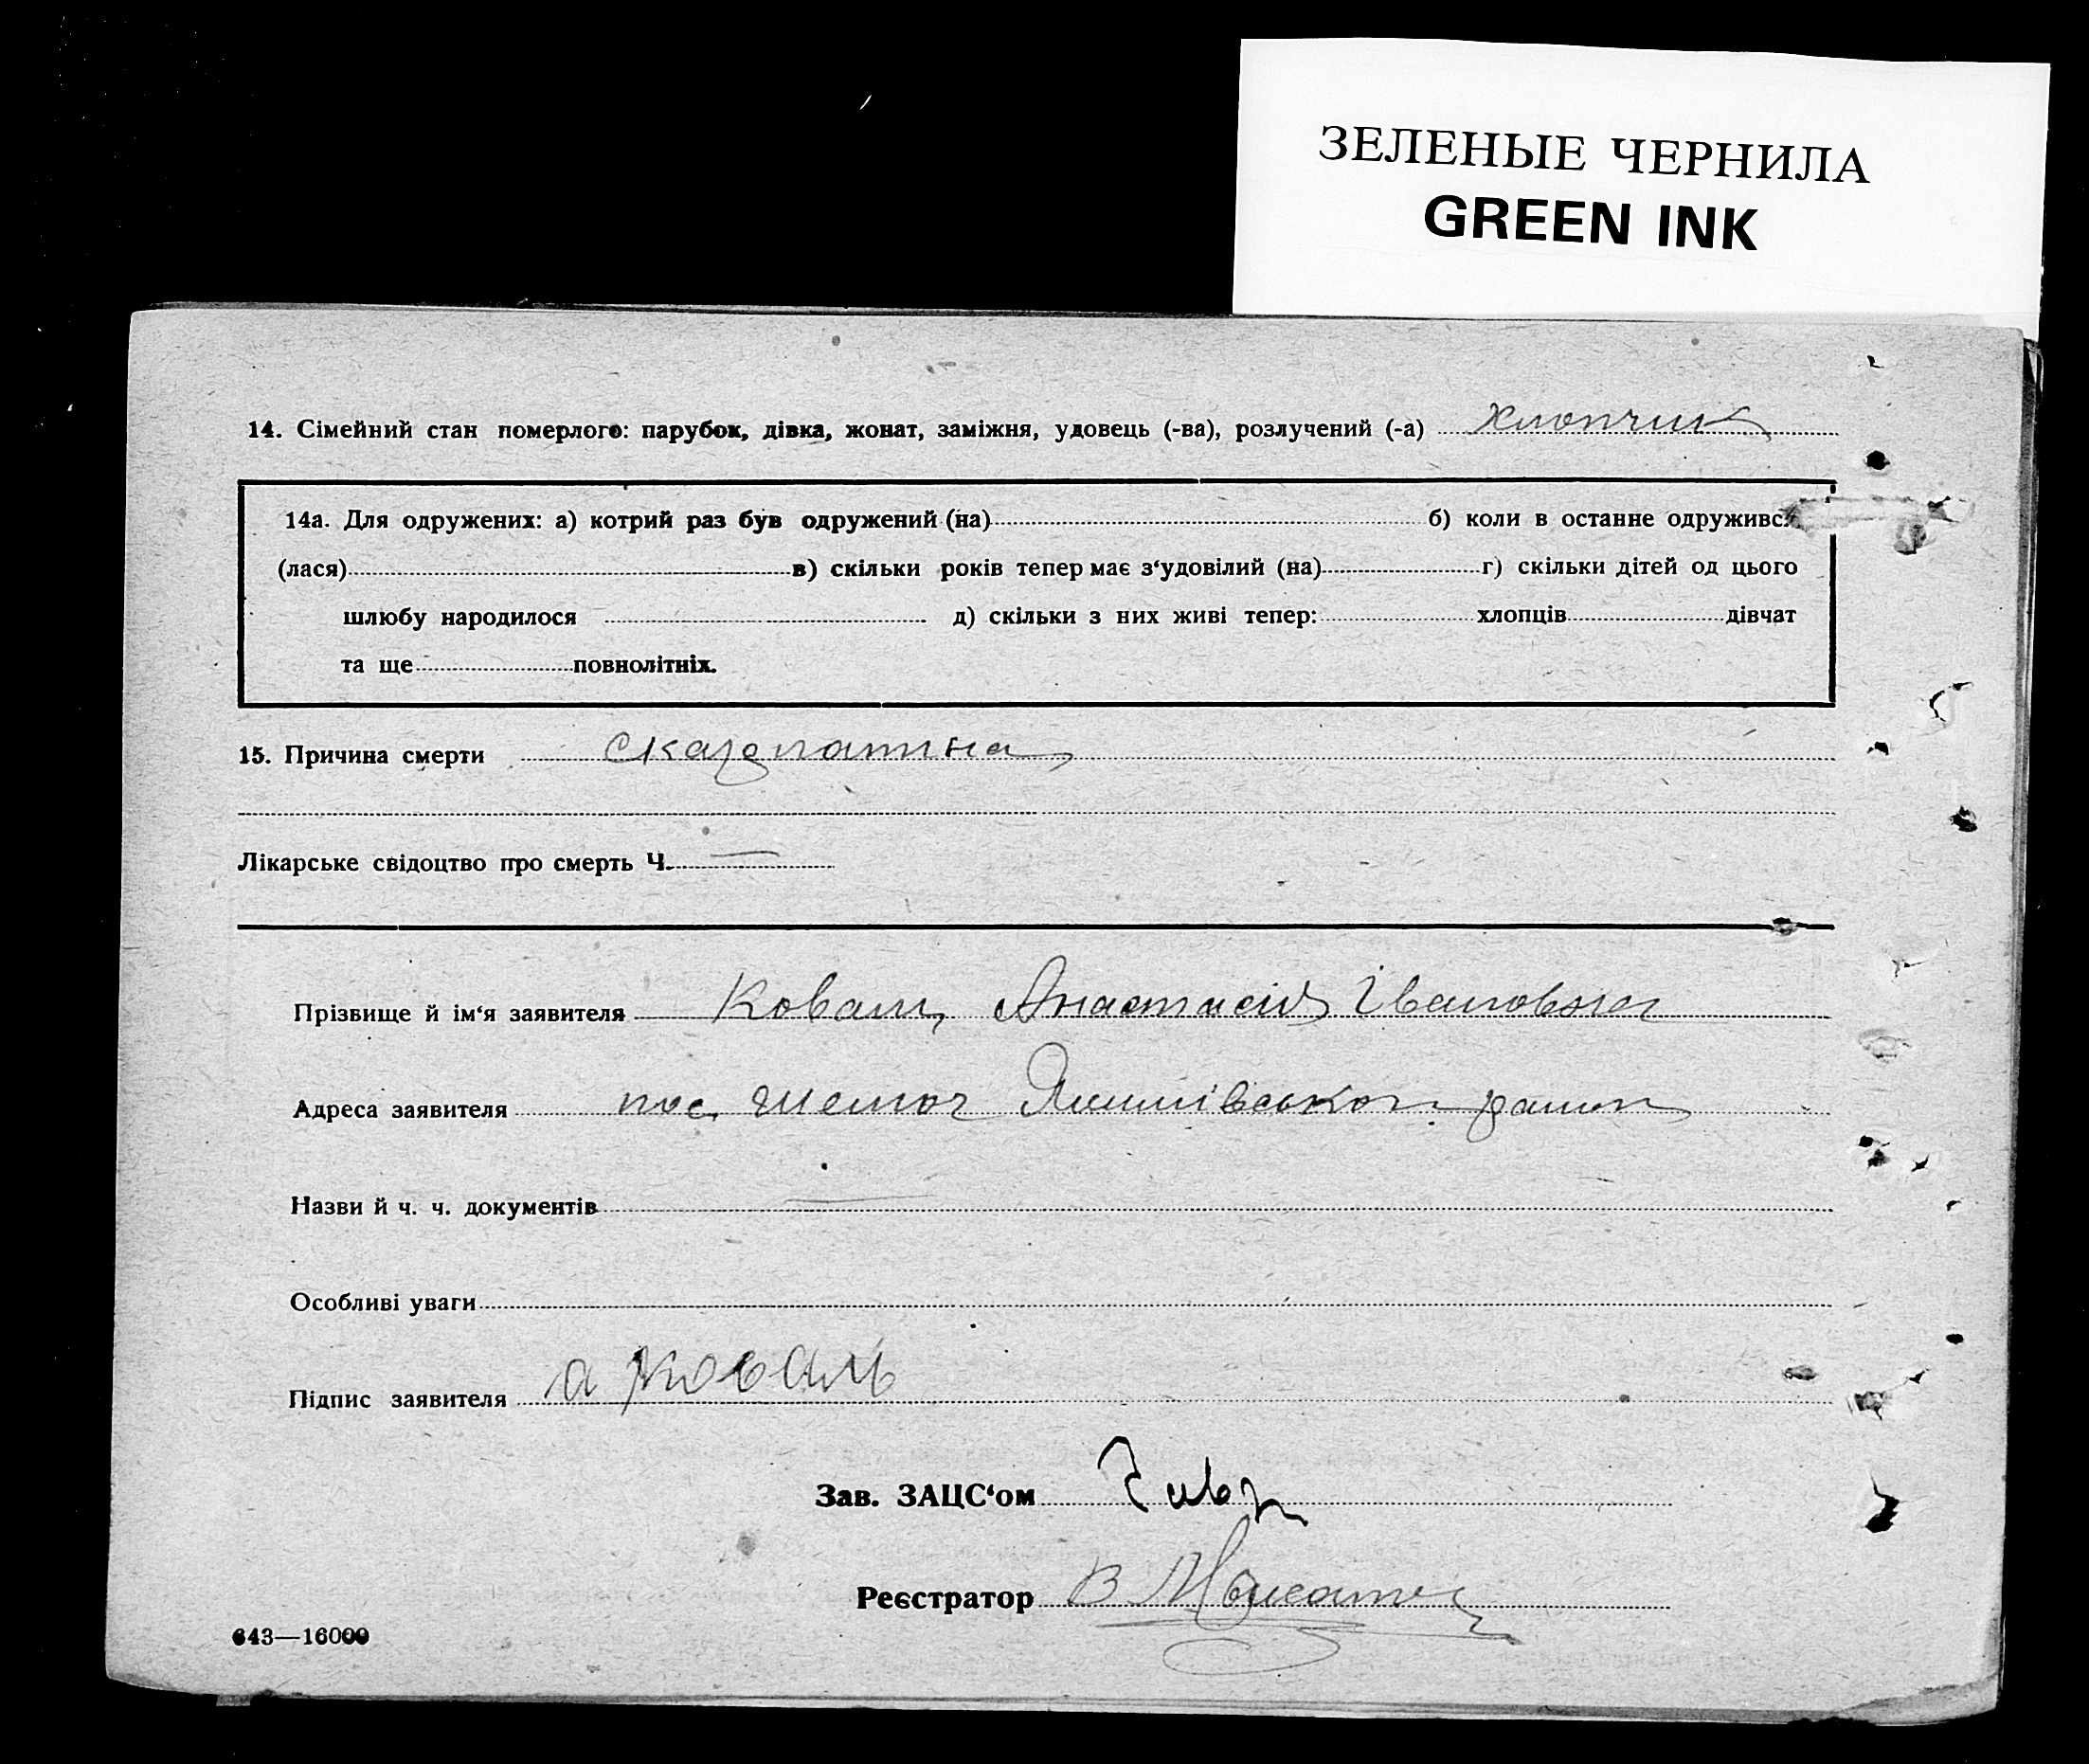 ЗЕЛЕНЫЕ ЧЕРНИЛА
GREEN INK
14. Сімейний стан померлого: парубок, дівка, жонат, заміжня, удовець (-ва), розлучений (-а) хлопчик
14а. Для одружених: а) котрий раз був одружений (на) б) коли в останне одружився
(лася) в) скільки років тепер має з‘удовілий (на) г) скільки дітей од цього
шлюбу народилося д) скільки з них живі тепер: хлопців дівчат
та ще повнолітніх.
15. Причина смерти скарлатина
Лікарське свідоцтво про смерть Ч. —
Прізвище й ім‘я заявителя Коваль Анастасія Івановна
Адреса заявителя пос.
Назви й ч. ч. документів —
Особливі уваги
Підпис заявителя а Коваль
Зав. ЗАЦС‘ом
Реєстратор В
643—16000